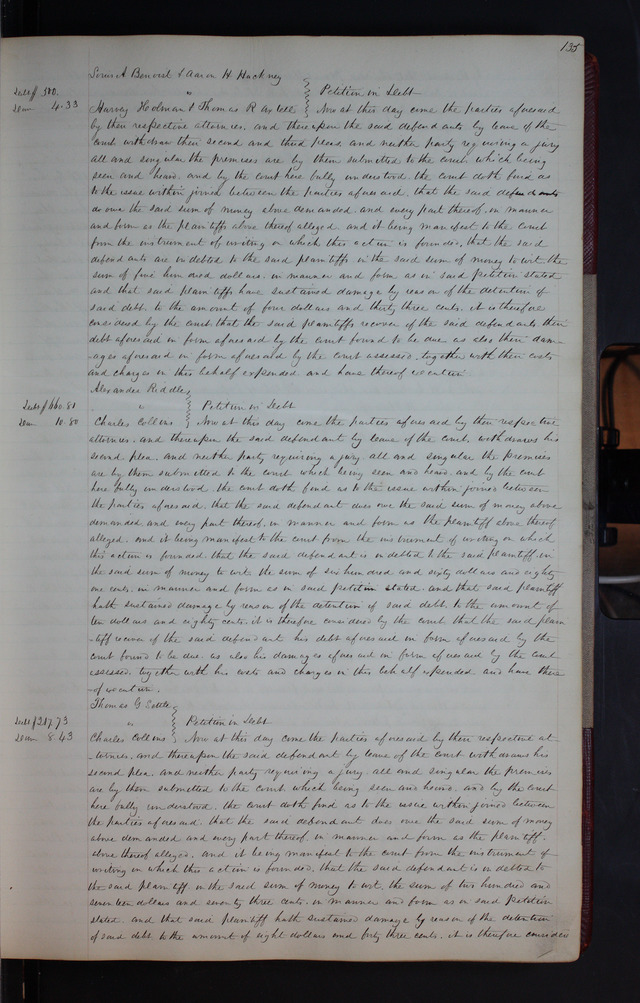 135
Louis A Benoist & Aaron H Hackney
Debt $ 500. " Petition in Debt
Dam 4.33 Harvey Hodman & Thomas R Axtell Now at this day come the parties aforesaid
by their respective attornies, and thereupon the said defendants by leave of the
court withdraw their second and third pleas, and neither party requiring a jury
all and singular the premises are by them submitted to the court which being
seen and heard and by the court here fully understood, the court doth find as
to the issue within joined between the parties aforesaid, that the said defendants
do owe the said sum of money above demanded, and every part thereof, in manner
and form as the plaintiffs above thereof alleged, and it being manifest to the court
from the instrument of writing on which this action is founded, that the said
defendants are indebted to the said plaintiffs in the said sum of money to wit, the
sum of five hundred dollars, in manner and form as in said petition stated
and that said plaintiffs have sustained damage by reason of the detention of
said debt, to the amount of four dollars and thirty three cents, it is therefore
considered by the court that the said plaintiffs recover of the said defendants their
debt aforesaid in form aforesaid by the court found to be due as also their dam-
ages aforesaid in form aforesaid by the court assessed, together with their costs
and charges in this behalf expended and have thereof execution
Alexander Riddle
Debt $ 660.81 " Petition in Debt
Dam 10.80 Charles Collins Now at this day come the parties aforesaid by their respective
attornies, and thereupon the said defendant by leave of the court, withdraws his
second plea, and neither party requiring a jury all and singular the premises
are by them submitted to the court which being seen and heard and by the court
here fully understood, the court doth find as to the issue within joined between
the parties aforesaid, that the said defendant does owe the said sum of money above
demanded and every part thereof, in manner and form as the plaintiff above thereof
alleged, and it being manifest to the court from the instrument of writing on which
this action is founded, that the said defendant is indebted to the said plaintiff in
the said sum of money to wit the sum of six hundred and sixty dollars and eighty
one cents, in manner and form as in said petition stated, and that said plaintiff
hath sustained damage by reason of the detention of said debt, to the amount of
ten dollars and eighty cents, it is therefore considered by the court that the said plain
-tiff recover of the said defendant his debt aforesaid in form aforesaid by the
court found to be due, as also his damages aforesaid in form aforesaid by the court
assessed, together with his costs and charges in this behalf expended and have there
-of execution.
Thomas G Settle
Debt $ 217.73 " Petition in Debt
Dam 8.43 Charles Collins Now at this day come the parties aforesaid by their respective at
-tornies, and thereupon the said defendant by leave of the court withdraws his
second plea, and neither party requiring a jury, all and singular the premises
are by them submitted to the court, which being seen and heard, and by the court
here fully understood, the court doth find as to the issue within joined between
the parties aforesaid, that the said defendant does owe the said sum of money
above demanded and every part thereof in manner and form as the plaintiff,
above thereof alleged, and it being manifest to the court from the instrument of
writing on which this action is founded, that the said defendant is indebted to
the said plaintiff in the said sum of money to wit, the sum of two hundred and
seventeen dollars and seventy three cents, in manner and form as in said petition
stated, and that said plaintiff hath sustained damage by reason of the detention
of said debt, to the amount of eight dollars and forty three cents, it is therefore considere